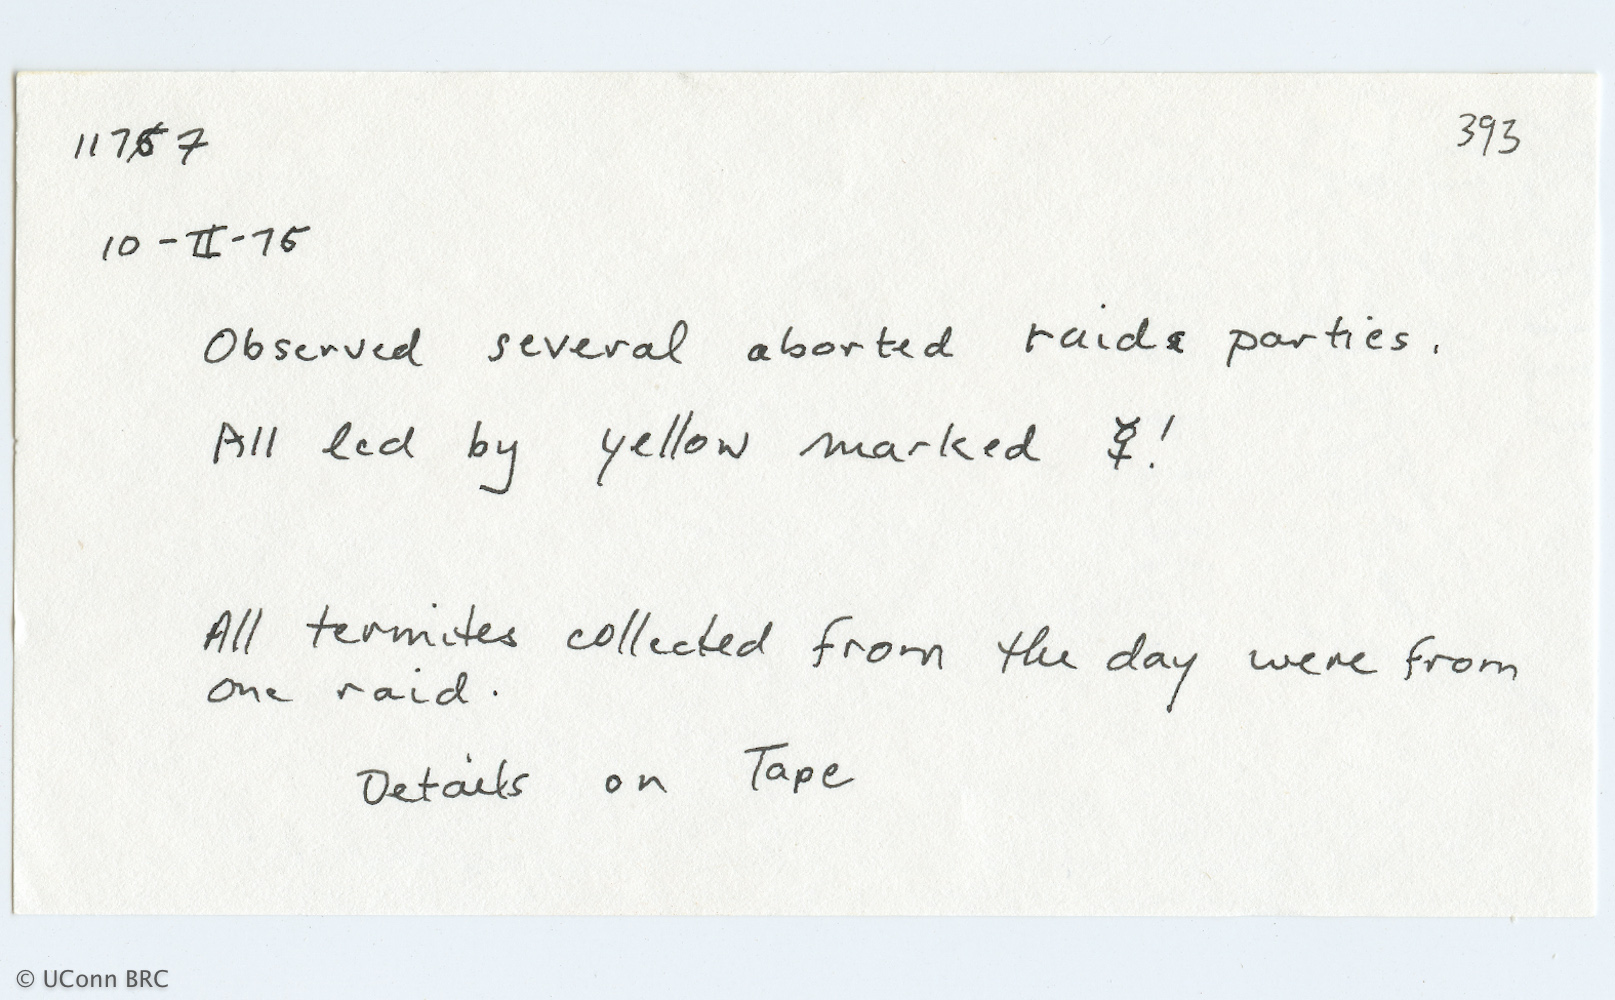 11757
393
10-II-75
Observed several aborted raids parties.
All led by yellow marked ☿!
All termites collected from the day were from
one raid.
Details on Tape
© UConn BRC